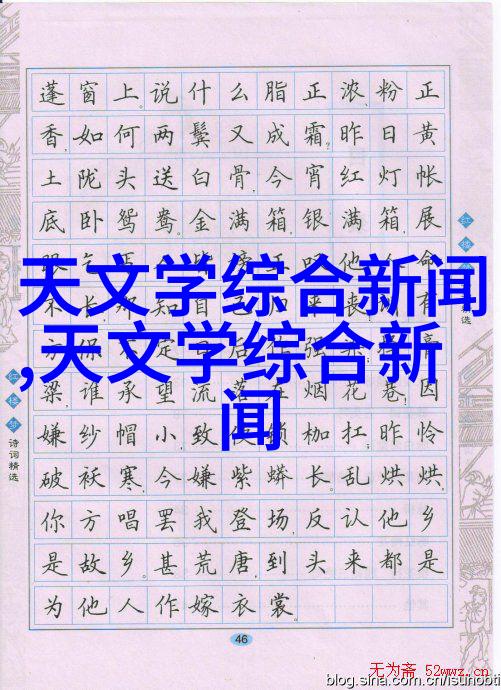 蓬窗上。说什么脂正浓、粉正
香,如何两鬓又成霜?昨日黄
土陇头送白骨,今宵红灯帐
底卧鸳鸯。金满箱,银满箱,展
他 命
长, 知自 来丧 有
定 强 膏
梁,谁承望流落在烟花巷,因
嫌纱帽小,致 锁枷扛,昨怜
破袄寒,今嫌紫蟒长。乱烘烘,
你方唱罢我登场,反认他乡
是故乡。甚荒唐,到头来都是
为他人作嫁衣裳
天文学综合新闻
,天文学综合新
闻
红楼梦
诗词精选
46
无为斋 52wwz.cn
blog.sina.com.cn/isunobt